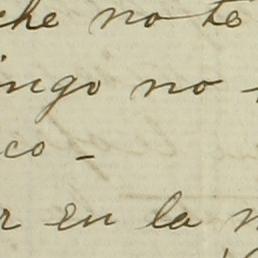 che no te
ingo no
co -
r en la